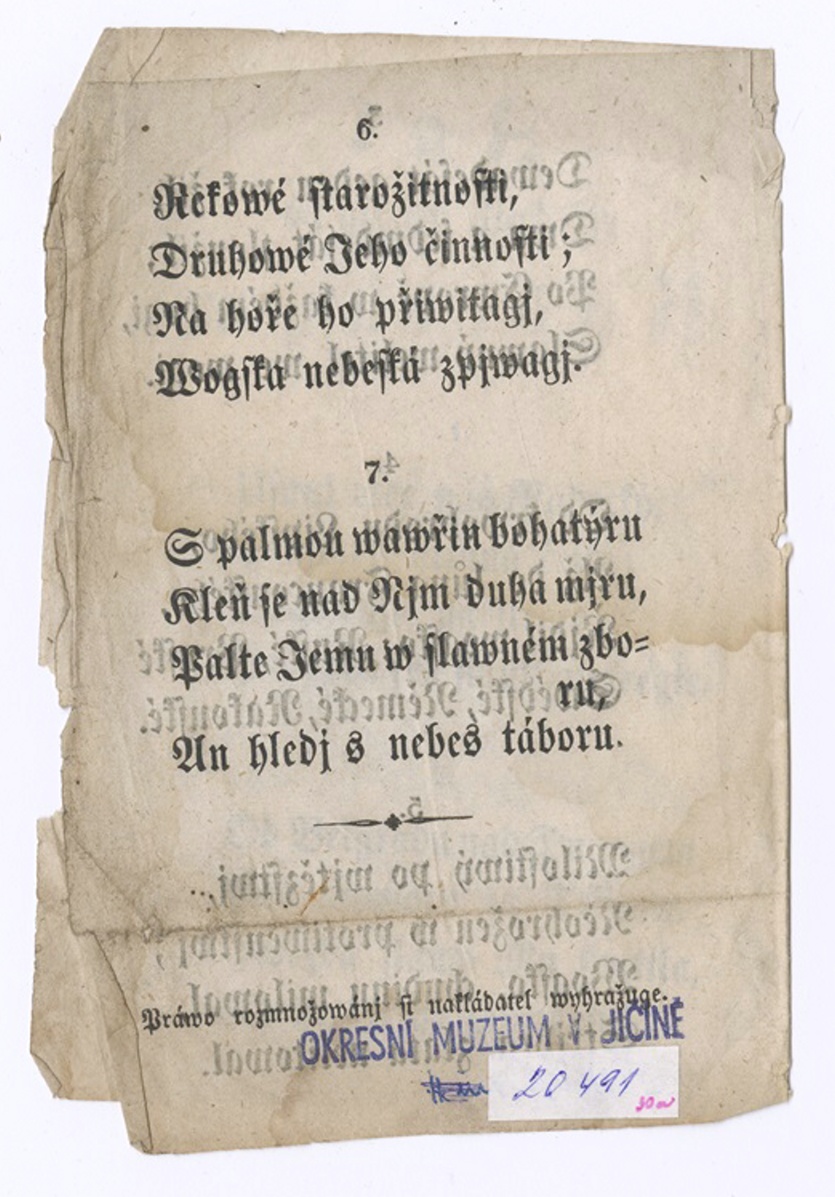 6.
Rekowé starožitnosti,
Druhowé Jeho činnosti;
Na hoře ho přiwitagj,
Wogska nebeská zpjwagj.
7.
S palmou wawřin bohatýru
Kleň se nad Njm duha mjru,
Palte Jemu w slawném zbo=
ru,
An hledj s nebes táboru.
Práwo rozmnožowánj si nakládatel wyhražuge.
OKRESNÍ MUZEUM V JIČÍNĚ
20 491